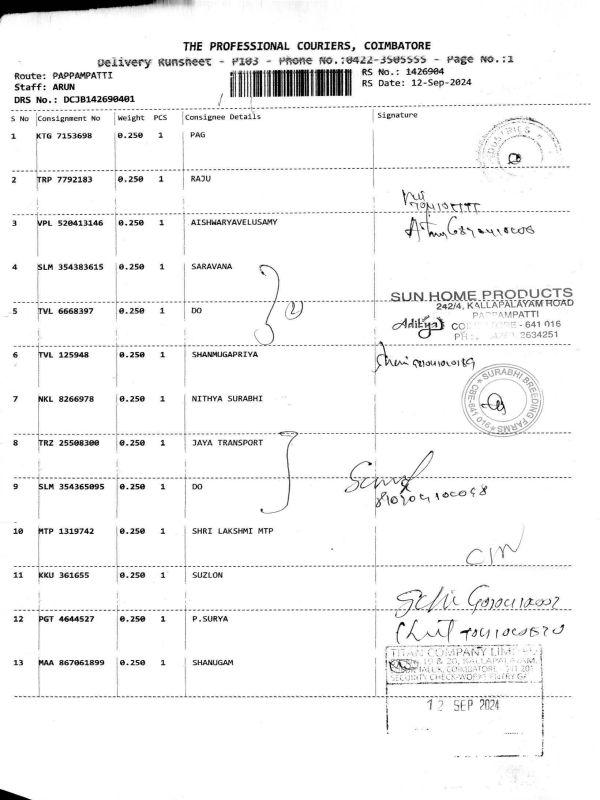 THE PROFESSIONAL COURIERS, COIMBATORE
Delivery Runsheet - P103 - Phone No.:0422-3505555 - Page No.:1
Route: PAPPAMPATTI
Staff: ARUN
DRS No.: DCJB142690401
RS No.: 1426904
RS Date: 12-Sep-2024
S No Consignment No Weight PCS Consignee Details Signature
1 KTG 7153698 0.250 1 PAG
2 TRP 7792183 0.250 1 RAJU
3 VPL 520413146 0.250 1 AISHWARYAVELUSAMY
4 SLM 354383615 0.250 1 SARAVANA
(2)
SUN HOME PRODUCTS
242/4, KALLAPALAYAM ROAD
PAPPAMPATTI
5 TVL 6668397 0.250 1 DO
Aditya
- 641 016
2634251
6 TVL 125948 0.250 1 SHANMUGAPRIYA
7 NKL 8266978 0.250 1 NITHYA SURABHI
SURABHI BREEDING FARMS
8 TRZ 25508300 0.250 1 JAYA TRANSPORT
9 SLM 354365095 0.250 1 DO
10 MTP 1319742 0.250 1 SHRI LAKSHMI MTP
11 KKU 361655 0.250 1 SUZLON
12 PGT 4644527 0.250 1 P.SURYA
13 MAA 867061899 0.250 1 SHANUGAM
TITAN COMPANY LIMITED
19 & 20, KALLAPALAYAM,
COIMBATORE
SECURITY CHECK
12 SEP 2024